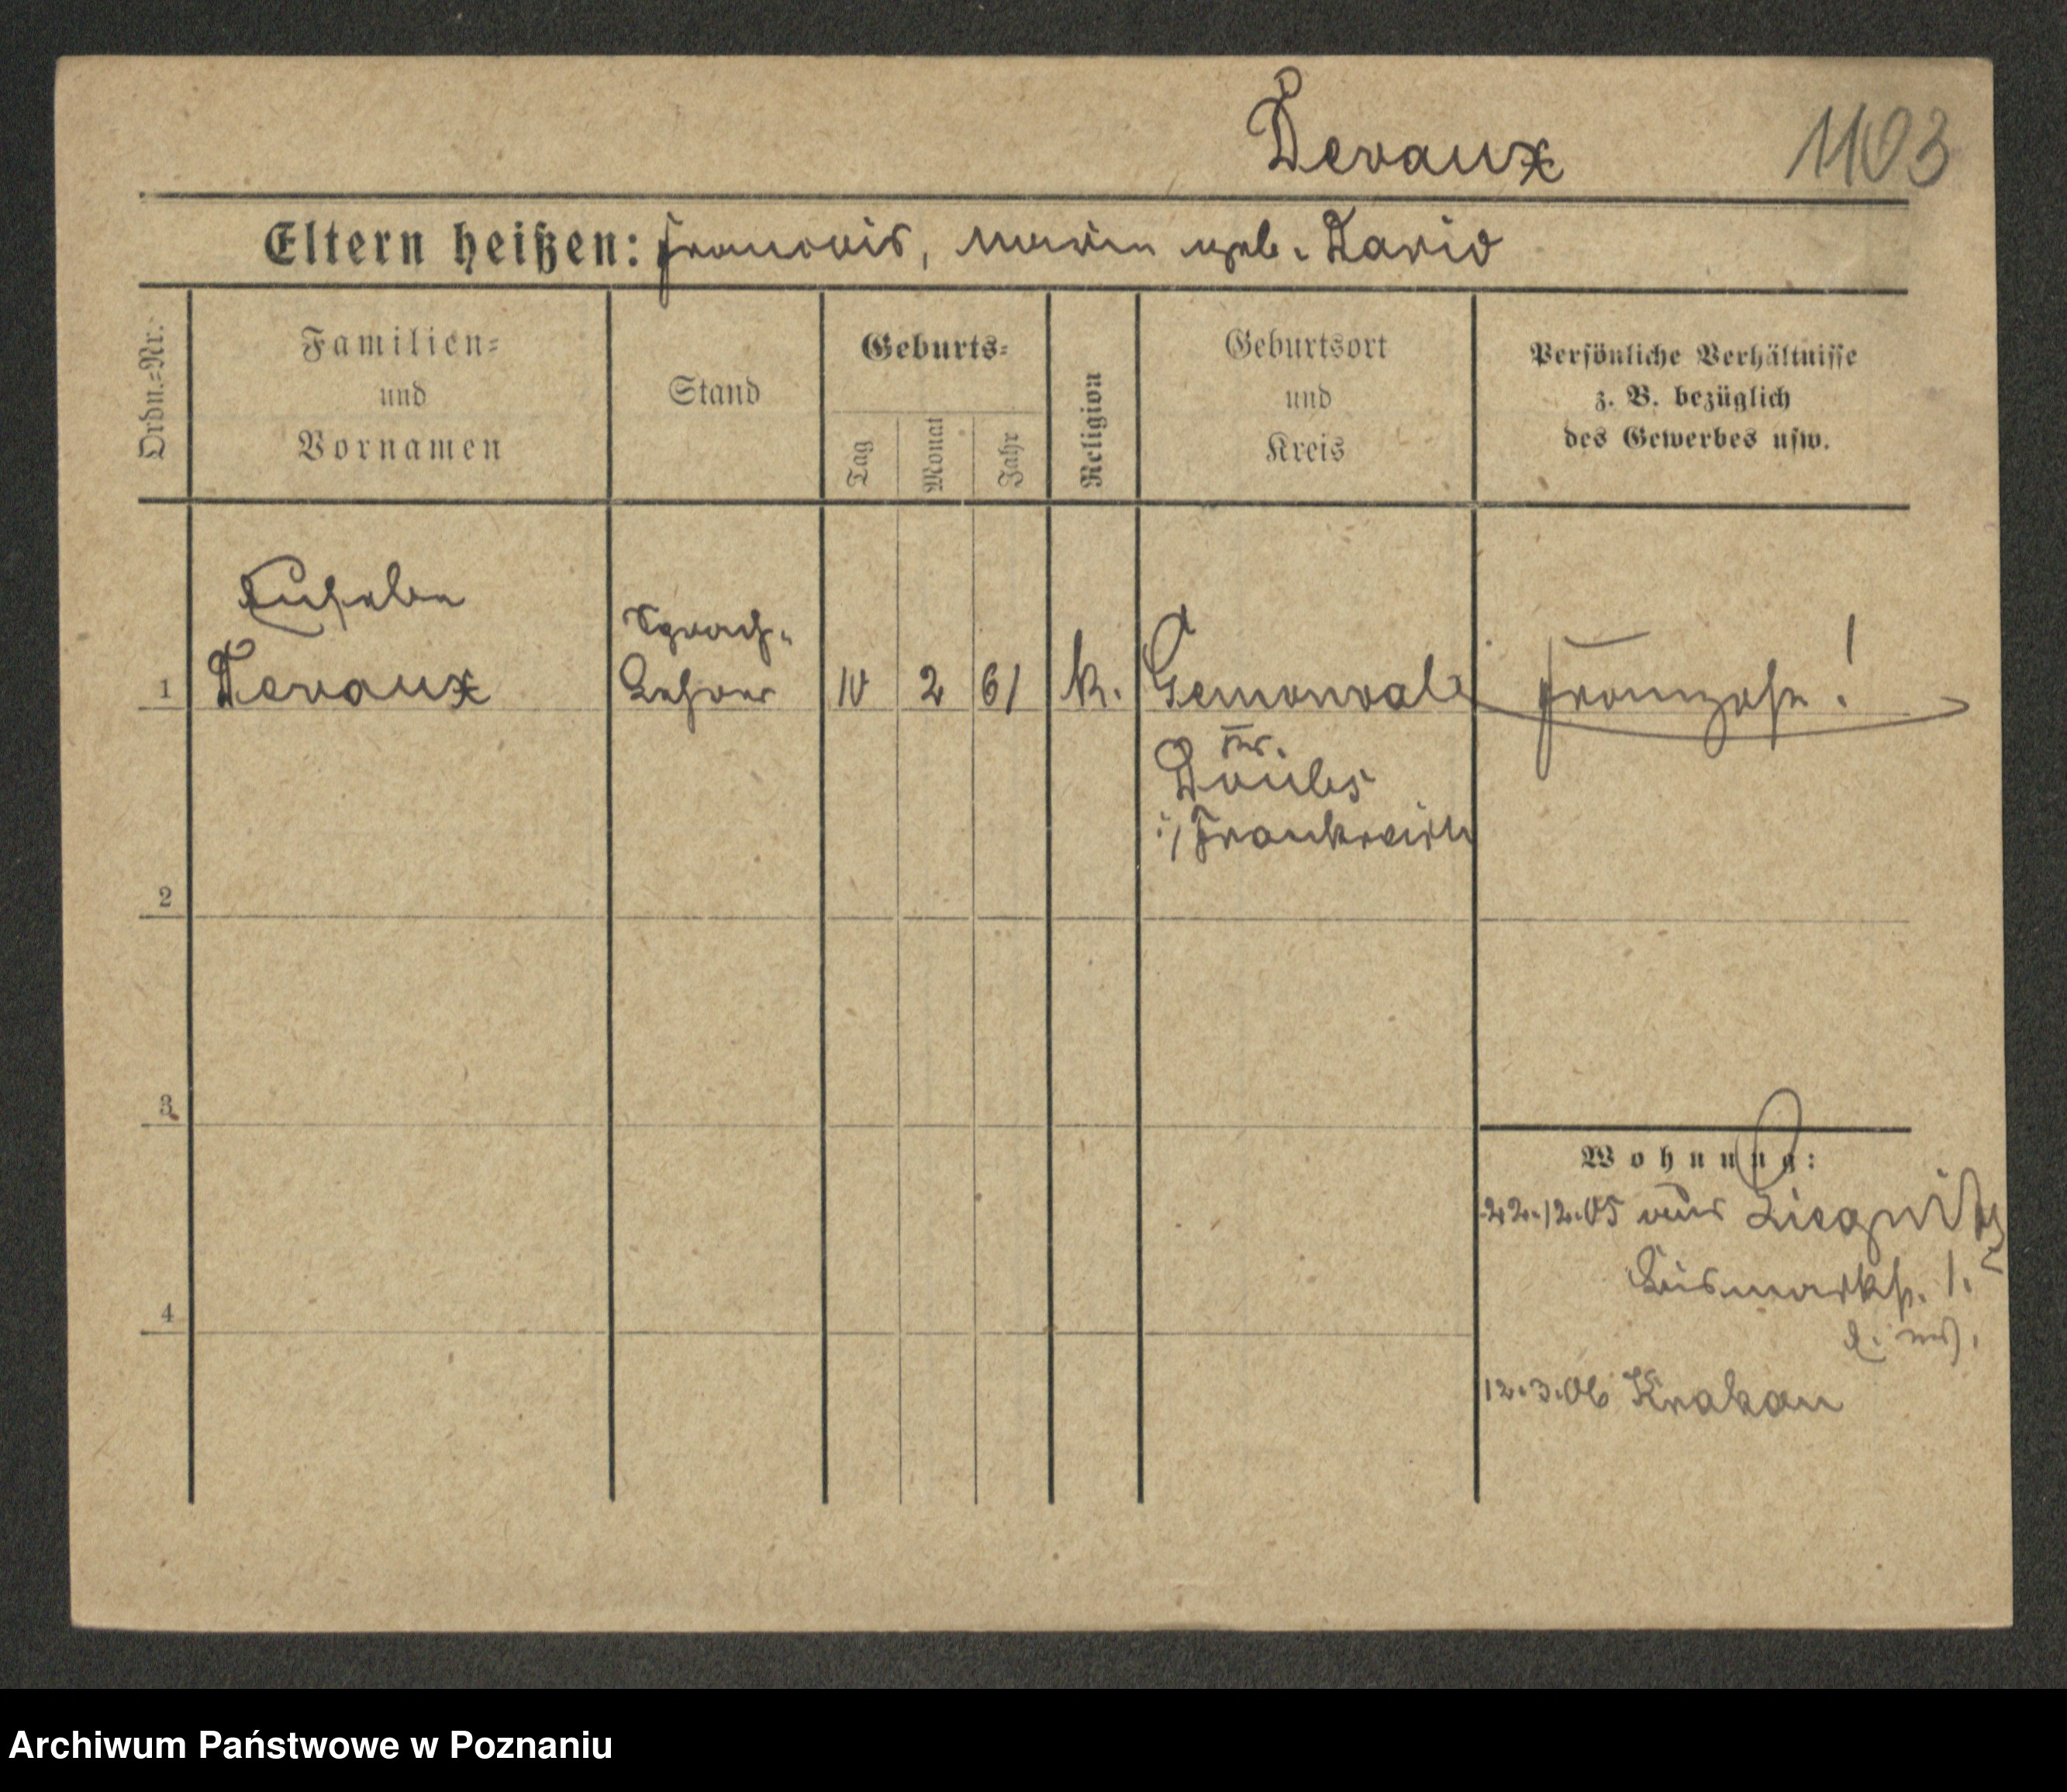 Devaux 1103
Eltern heißen: Francois, Marie geb. David
Ordn.=Nr.
Familien=
und
Vornamen
Stand
Geburts=
Tag
Monat
Jahr
Religion
Geburtsort
und
Kreis
Persönliche Verhältnisse
z. B. bezüglich
des Gewerbes usw.
Sprach-
1 Devaux Lehrer 10 2 61 k. Gemonval Franzose!
Kr.
Doubs
i/ Frankreich
2
3
Wohnung:
22.12.05 aus Liegnitz
Bismarkstr. 1.
12.3.06 Krakau
4
Archiwum Państwowe w Poznaniu